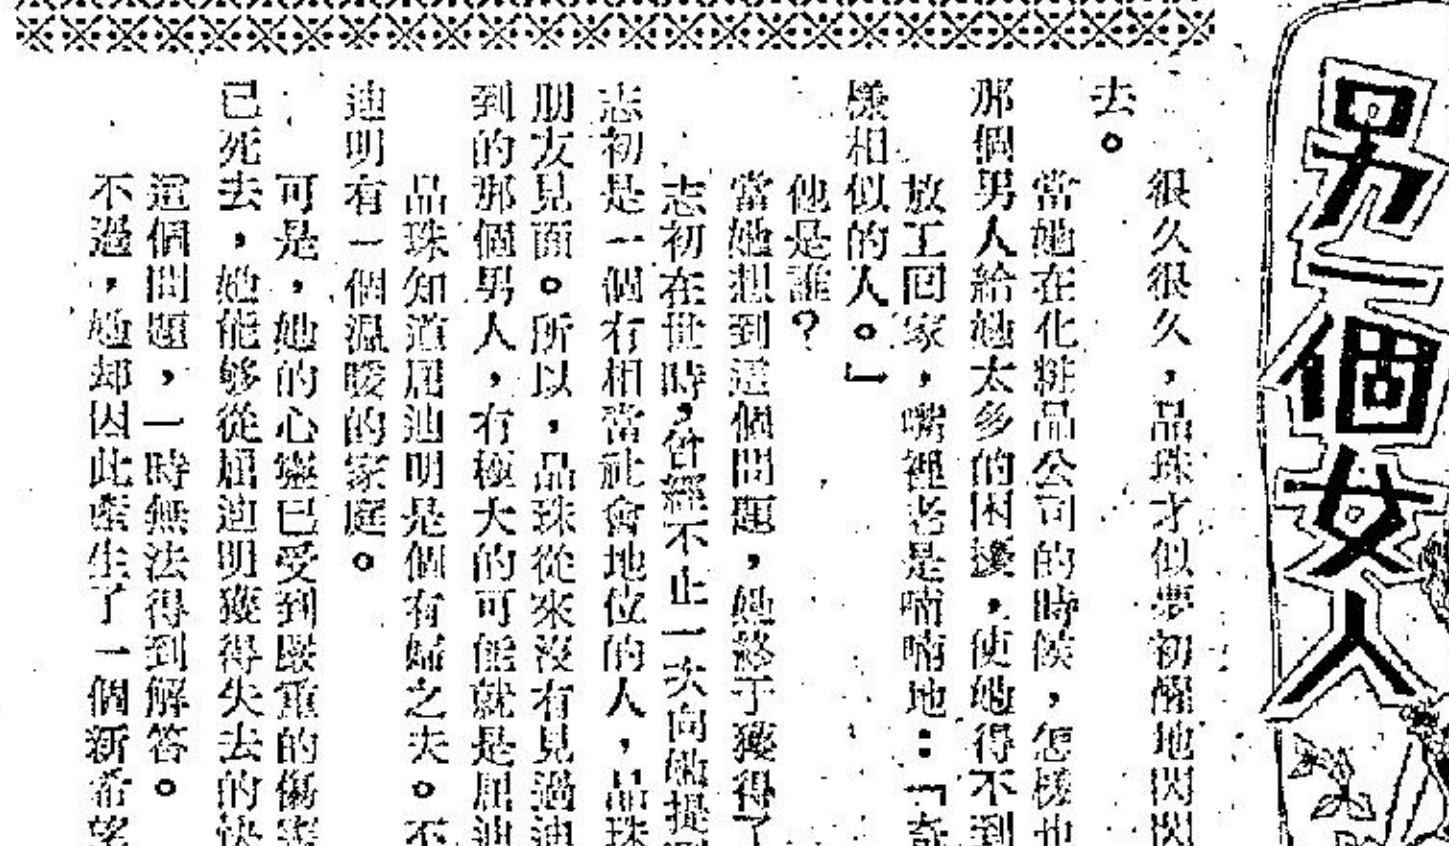 另一個女人
很久很久，品珠才似夢初醒地閃閃
去。
當她在化粧品公司的時候，怎樣也
那個男人給她太多的困擾，使她得不到
放工回家，嘴裡老是喃喃地：「奇
樣相似的人。」
他是誰？
當她想到這個問題，她終于獲得了
志初在世時，曾經不止一次向她提到
志初是一個有相當社會地位的人，品珠
朋友見面。所以，品珠從來沒有見過迪
到的那個男人，有極大的可能就是屈迪
品珠知道屈迪明是個有婦之夫。不
迪明有一個溫暖的家庭。
可是，她的心靈已受到嚴重的傷害
已死去，她能够從屈迪明獲得失去的快
這個問題，一時無法得到解答。
不過，她却因此產生了一個新希望